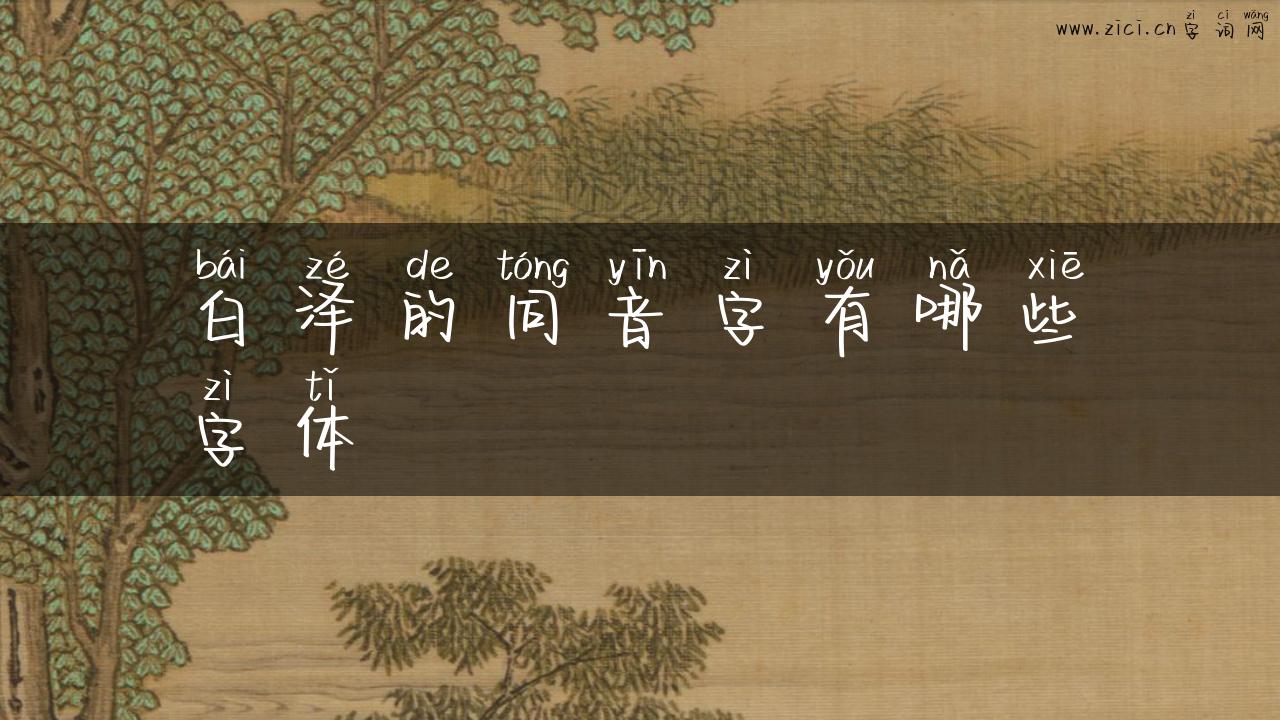 zì cí wǎng
www.zici.cn字词网
bái zé de tóng yīn zì yǒu nǎ xiē
白泽的同音字有哪些
zì tǐ
字体